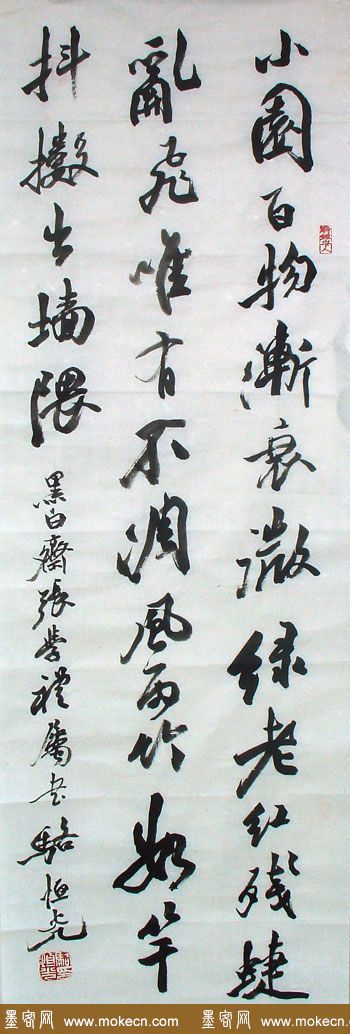 小園百物漸衰微绿老红殘蜨
亂飛唯有不凋風雨竹數竿
抖擻出墙隈
黑白齋張禮屬書駱恒光
墨客网 www.mokecn.com 墨客网 www.mokecn.com